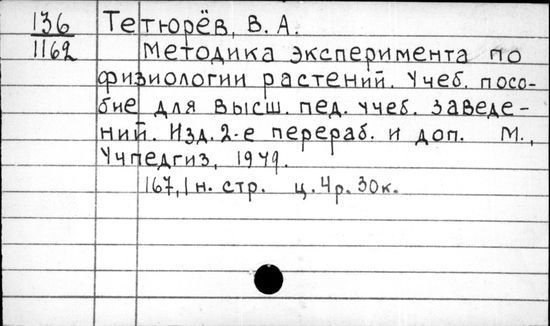 136 Тетюрёв, В. А.
1162 Методика эксперимента по
физиологии растений. Учеб. посо-
бие для высш. пед. учеб. заведе-
ний. Изд. 2-е перераб. и доп. М.,
Учпедгиз, 1949.
167,1 н. стр. ц. 4 р. 30 к.